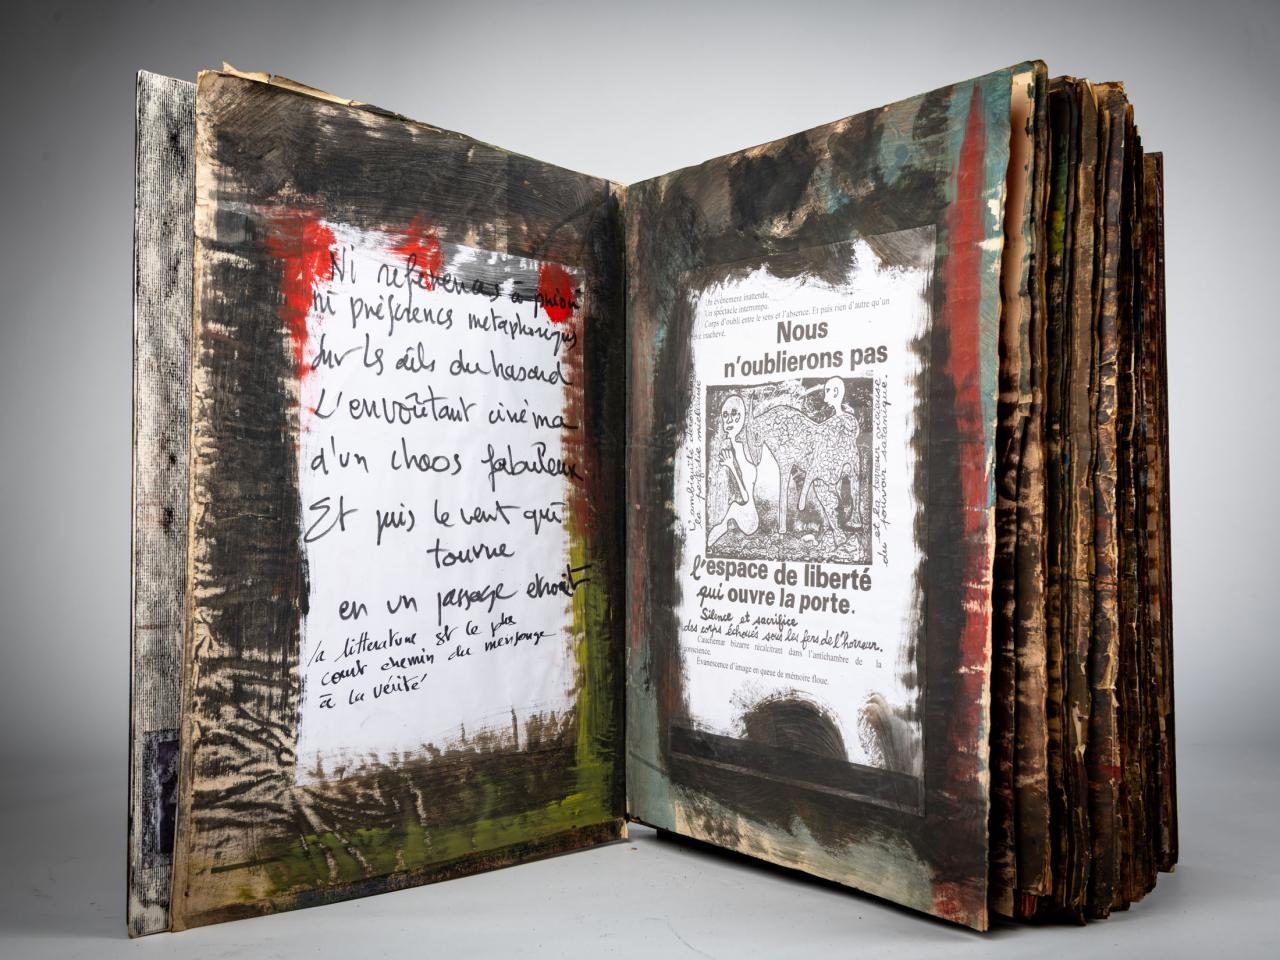 Ni references a priori
ni préférences métaphoriques
sur les du hasard
L'envoûtant cinéma
d'un chaos fabuleux
Et puis le vent qui
tourne
en un passage etroit
la litterature est le plus
court chemin du mensonge
à la vérité
Un événement inattendu.
Un spectacle interrompu.
Corps d'oubli entre le sens et l'absence. Et puis rien d'autre qu'un
inachevé.
Nous
n'oublierons pas
l'ambiguïté
la perfidie
et la terreur
du pouvoir satanique.
l'espace de liberté
qui ouvre la porte.
Silence et sacrifice
des corps échoués sous les fers de l'horreur.
Cauchemar bizarre récalcitrant dans l'antichambre de la
conscience.
Évanescence d'image en queue de mémoire floue.